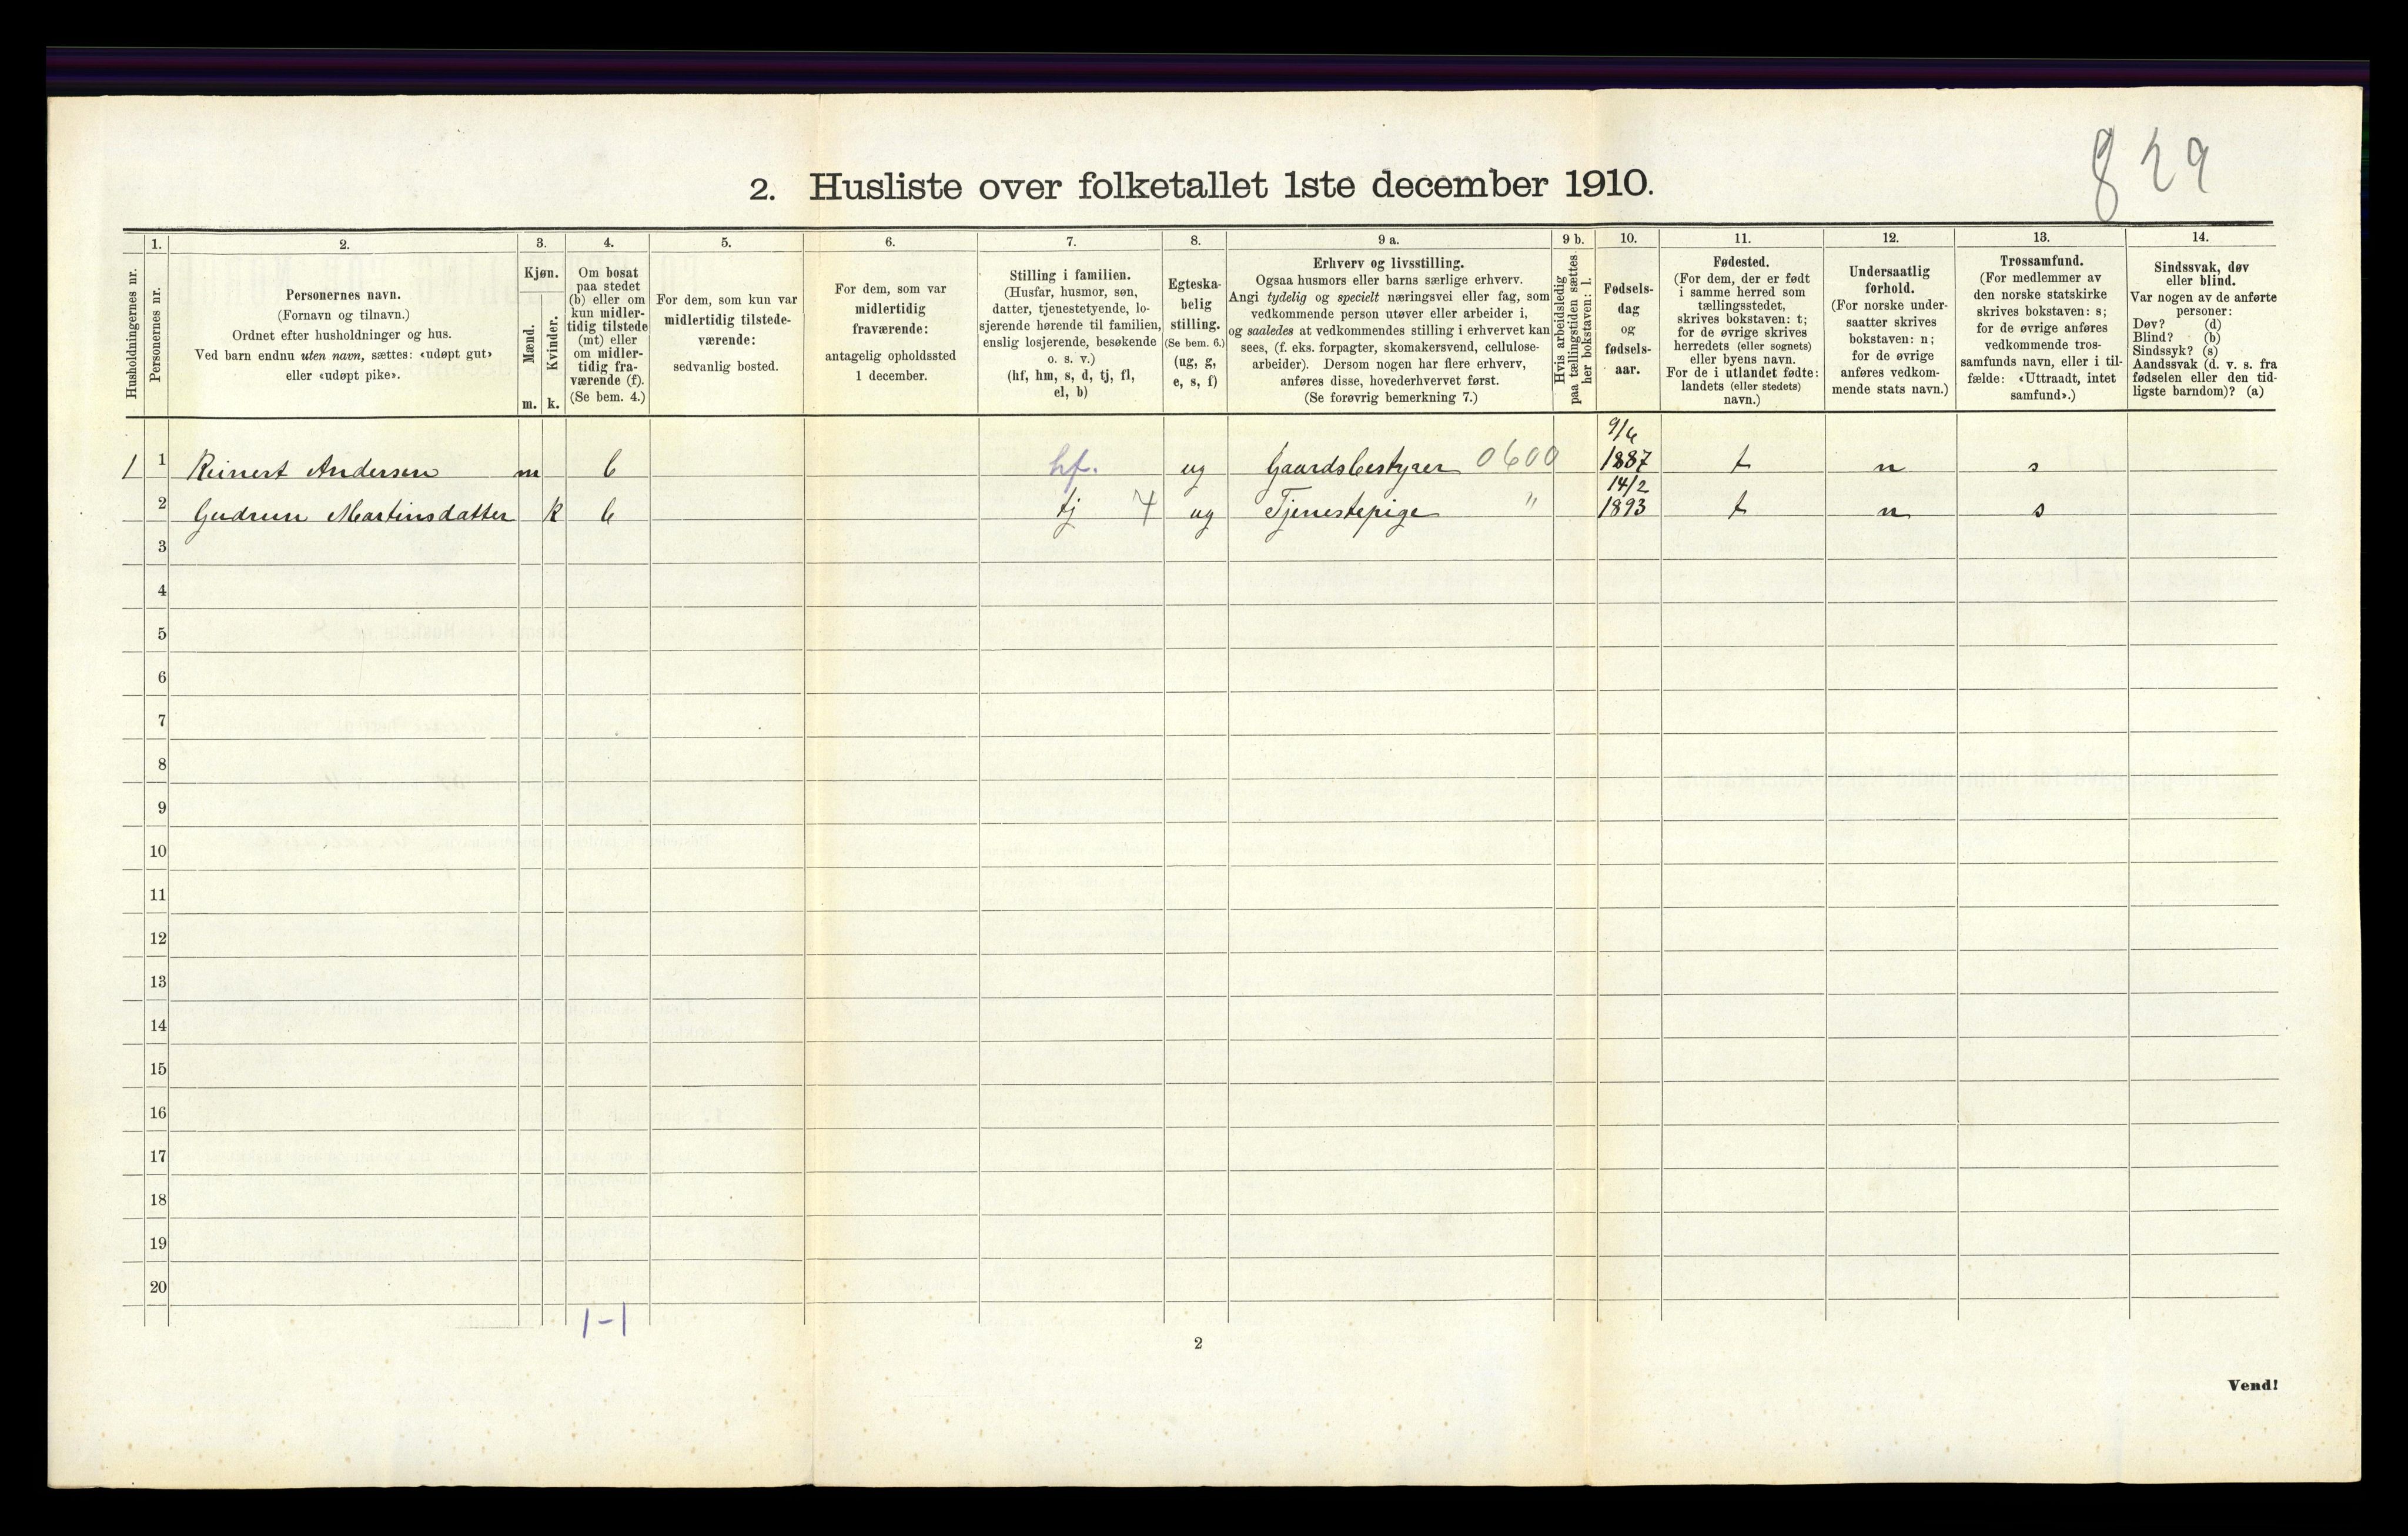 829
2. Husliste over folketallet 1ste december 1910.
Husholdningernes nr.
1.
Personernes nr.
2.
Personernes navn.
(Fornavn og tilnavn.)
Ordnet efter husholdninger og hus.
Ved barn endnu uten navn, sættes: «udøpt gut»
eller «udøpt pike».
3.
Kjøn.
Mænd.
Kvinder.
m. k.
4.
Om bosat
paa stedet
(b) eller om
kun midler-
tidig tilstede
(mt) eller
om midler-
tidig fra-
værende (f).
(Se bem. 4.)
5.
For dem, som kun var
midlertidig tilstede-
værende:
sedvanlig bosted.
6.
For dem, som var
midlertidig
fraværende:
antagelig opholdssted
1 december.
7.
Stilling i familien.
(Husfar, husmor, søn,
datter, tjenestetyende, lo-
sjerende hørende til familien,
enslig losjerende, besøkende
o. s. v.)
(hf, hm, s, d, tj, fl,
el, b)
8.
Egteska-
belig
stilling.
(Se bem. 6.)
(ug, g,
e, s, f)
9 a.
Erhverv og livsstilling.
Ogsaa husmors eller barns særlige erhverv.
Angi tydelig og specielt næringsvei eller fag, som
vedkommende person utøver eller arbeider i,
og saaledes at vedkommendes stilling i erhvervet kan
sees, (f. eks. forpagter, skomakersvend, cellulose-
arbeider). Dersom nogen har flere erhverv,
anføres disse, hovederhvervet først.
(Se forøvrig bemerkning 7.)
9 b.
Hvis arbeidsledig
paa tællingstiden sættes
her bokstaven: l.
10.
Fødsels-
dag
og
fødsels-
aar.
11.
Fødested.
(For dem, der er født
i samme herred som
tællingsstedet,
skrives bokstaven: t;
for de øvrige skrives
herredets (eller sognets)
eller byens navn.
For de i utlandet fødte:
landets (eller stedets)
navn.)
12.
Undersaatlig
forhold.
(For norske under-
saatter skrives
bokstaven: n;
for de øvrige
anføres vedkom-
mende stats navn.)
13.
Trossamfund.
(For medlemmer av
den norske statskirke
skrives bokstaven: s;
for de øvrige anføres
vedkommende tros-
samfunds navn, eller i til-
fælde: «Uttraadt, intet
samfund».)
14.
Sindssvak, døv
eller blind.
Var nogen av de anførte
personer:
Døv? (d)
Blind? (b)
Sindssyk? (s)
Aandssvak (d. v. s. fra
fødselen eller den tid-
ligste barndom)? (a)
9/6
1 1 Reinert Andersen m b hf. ug Gaardsbestyrer 0600 1887 t n s
14/2
2 Gudrun Martinsdatter k b tj 7 ug Tjenestepige " 1893 t n s
3
4
5
6
7
8
9
10
11
12
13
14
15
16
17
18
19
20
1-1
2
Vend!